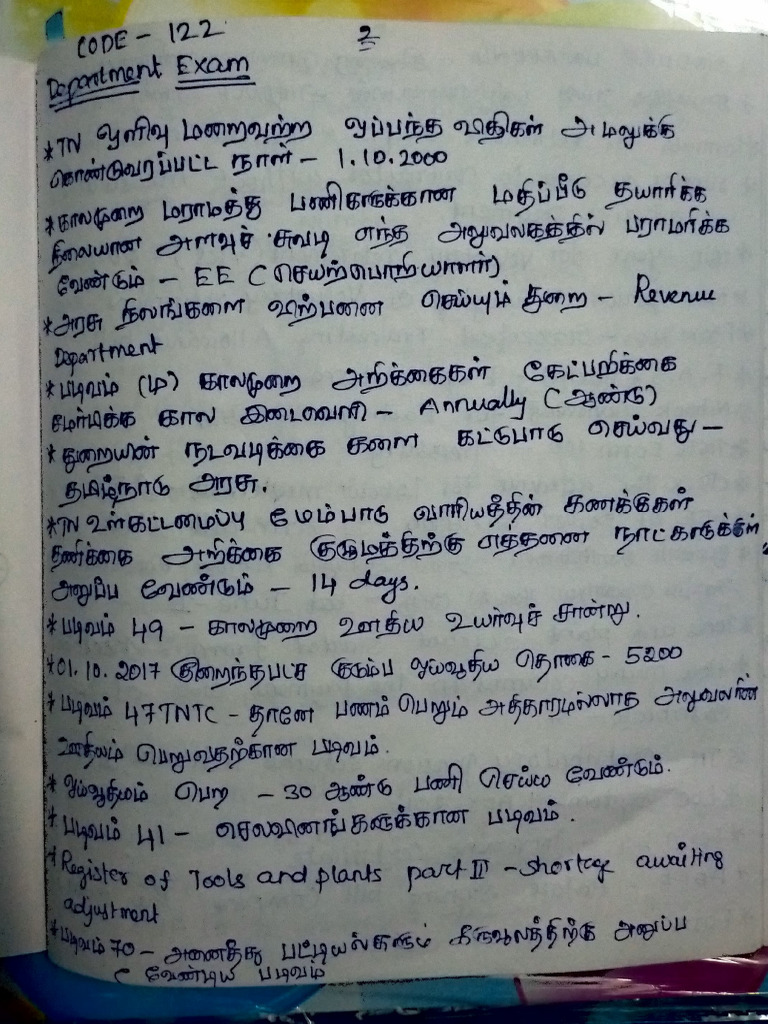 CODE - 122
2
Department Exam
*TN ஒளிவு மறைவற்ற ஒப்பந்த விதிகள் அமலுக்கு
கொண்டுவரப்பட்ட நாள் - 1.10.2000
*காலமுறை மராமத்து பணிகளுக்கான மதிப்பீடு தயாரிக்க
நிலையான அளவுச் சுவடி எந்த அலுவலகத்தில் பராமரிக்க
வேண்டும் - EE (செயற்பொறியாளர்)
*அரசு நிலங்களை விற்பனை செய்யும் துறை - Revenue
Department
*படிவம் (ம) காலமுறை அறிக்கைகள் கேட்பறிக்கை
சமர்பிக்க கால இடைவெளி - Annually (ஆண்டு)
*துறையின் நடவடிக்கை களை கட்டுபாடு செய்வது -
தமிழ்நாடு அரசு.
*TN உள்கட்டமைப்பு மேம்பாடு வாரியத்தின் கணக்குகள்
தணிக்கை அறிக்கை குழுமத்திற்கு எத்தனை நாட்களுக்குள்
அனுப்ப வேண்டும் - 14 days.
*படிவம் 49 - காலமுறை ஊதிய உயர்வுச் சான்று.
*01.10.2017 குறைந்தபட்ச குடும்ப ஓய்வூதிய தொகை - 5200
*படிவம் 47TNTC - தானே பணம் பெறும் அதிகாரமல்லாத அலுவலரின்
ஊதியம் பெறுவதற்கான படிவம்.
*ஓய்வூதியம் பெற - 30 ஆண்டு பணி செய்ய வேண்டும்.
*படிவம் 41 - செலவினங்களுக்கான படிவம்.
*Register of Tools and plants part III - shortage awaiting
adjustment
*படிவம் 70 - அனைத்து பட்டியல்களும் கருவூலத்திற்கு அனுப்ப
வேண்டிய படிவம்